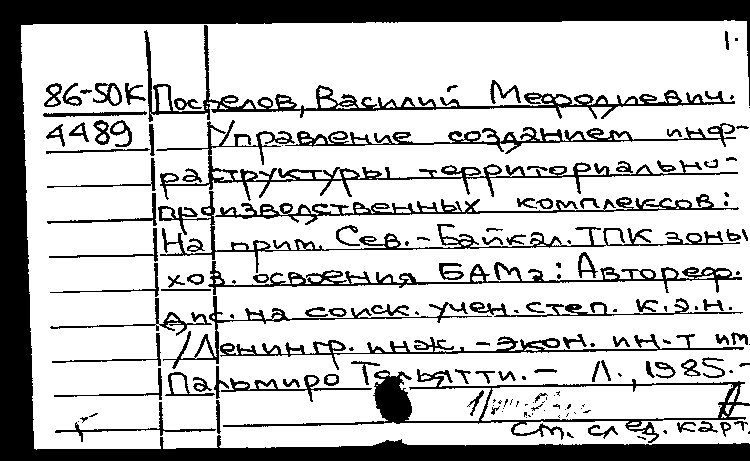 1.
86-50К Поспелов, Василий Мефодиевич.
4489 Управление созданием инф-
раструктуры территориально-
производственных комплексов:
На прим. Сев.-Байкал. ТПК зоны
хоз. освоения БАМа: Автореф.
дис. на соиск. учен. степ. к.э.н.
/Ленингр. инж.-экон. ин-т им.
Пальмиро Тольятти. – Л., 1985.-
См. след. карт.